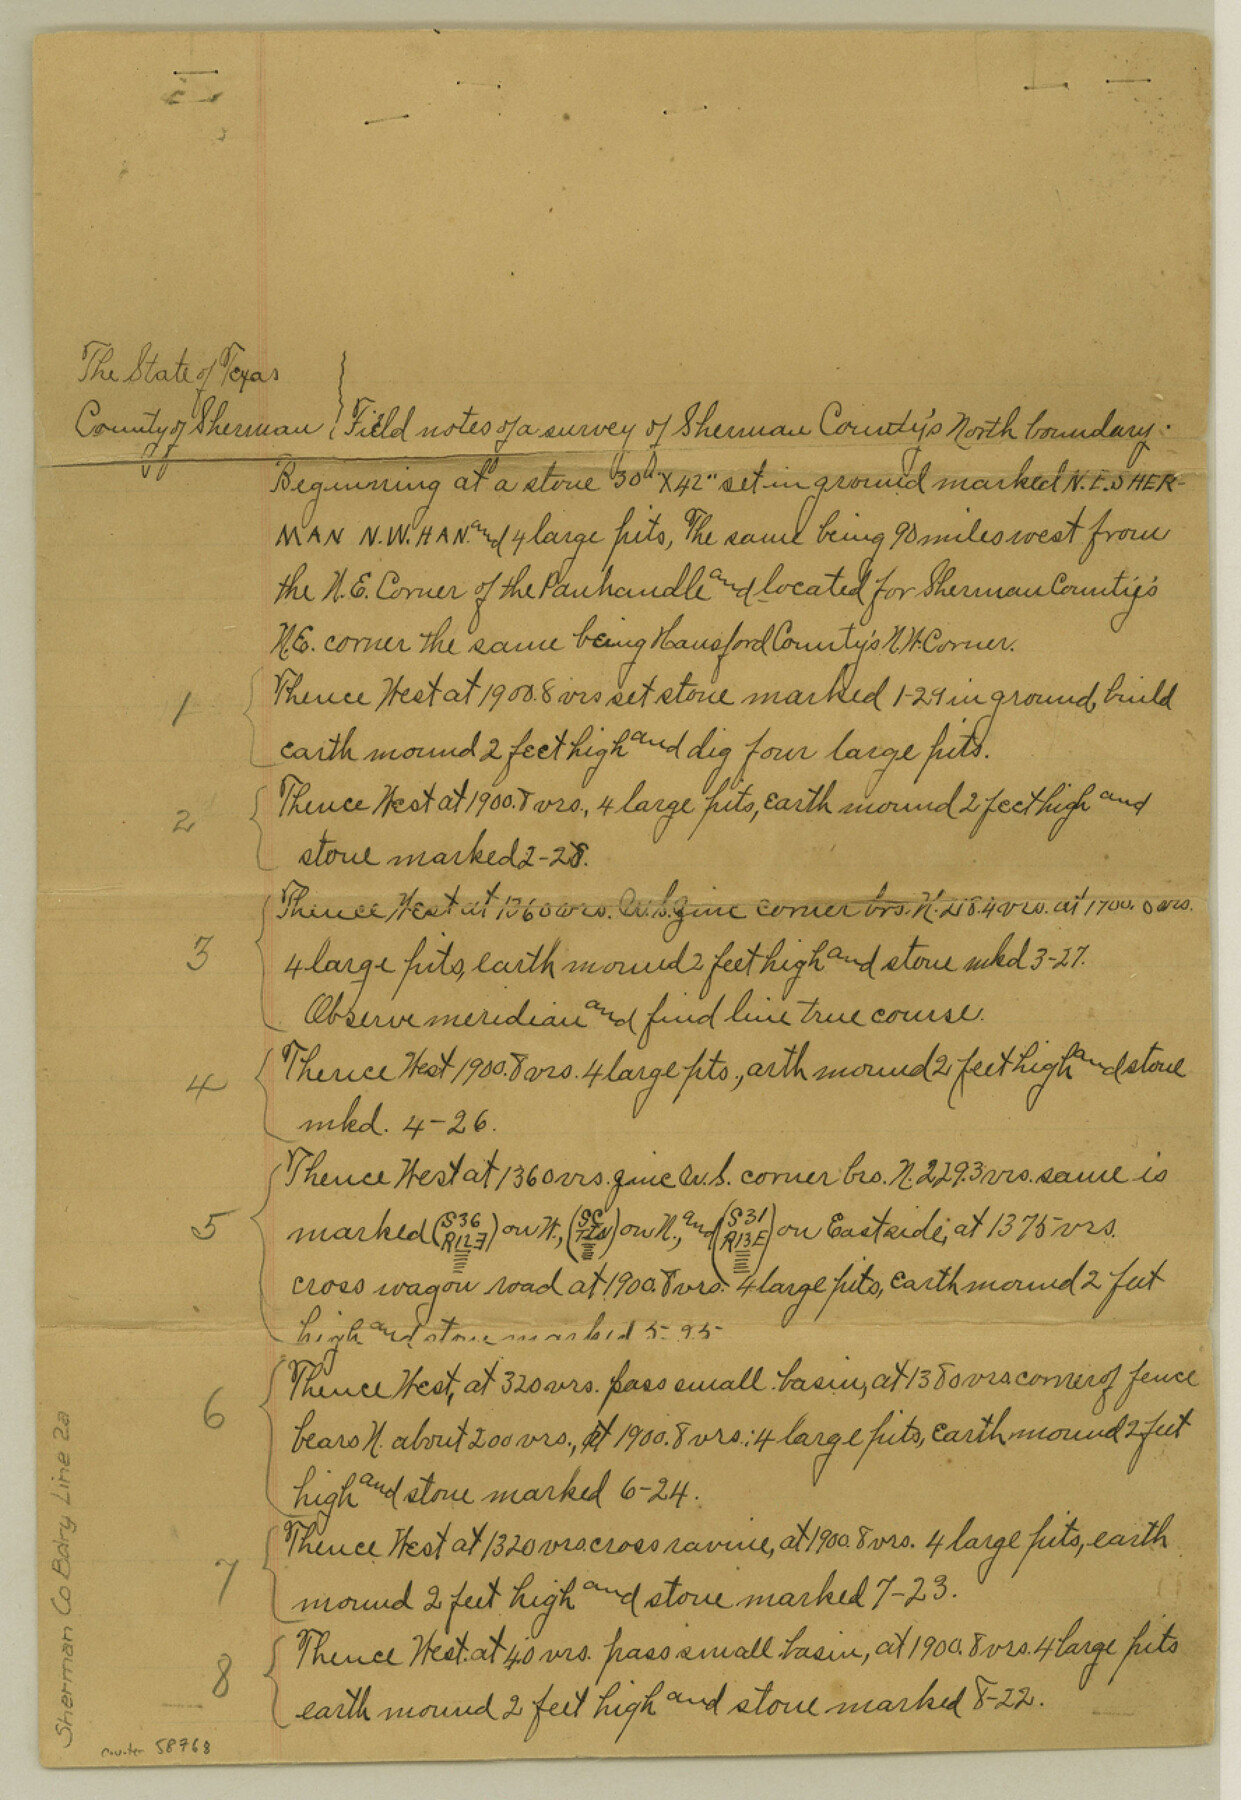 The State of Texas
County of Sherman } Field notes of a survey of Sherman County's North boundary.
Beginning at a stone 30"X42" set in ground marked N.E. SHER-
MAN N.W. HAN. and 4 large pits, The same being 90 miles west from
the N.E. Corner of the Panhandle and located for Sherman County's
N.E. corner the same being Hansford County's N.W. Corner.
1 Thence West at 1900.8 vrs set stone marked 1-29 in ground, build
earth mound 2 feet high and dig four large pits.
2 Thence West at 1900.8 vrs., 4 large pits, earth mound 2 feet high and
stone marked 2-28.
3 Thence West at 1360 vrs. zinc corner brs. N. 218.4 vrs. at
4 large pits, earth mound 2 feet high and stone mkd 3-27.
Observe meridian and find line true course.
4 Thence West 1900.8 vrs. 4 large pts., arth mound 2 feet high and stone
mkd. 4-26.
5 Thence West at 1360 vrs. zinc W.S. corner brs. N. 229.3 vrs. same is
marked (S36 R12E) on W., on N., and (S31 R13E) on East side; at 1375 vrs.
cross wagon road at 1900.8 vrs. 4 large pits, earth mound 2 feet
high and stone marked 5-25
6 Thence West, at 320 vrs. pass small basin, at 1380 vrs corner of fence
bears N. about 200 vrs., at 1900.8 vrs.: 4 large pits, earth mound 2 feet
high and stone marked 6-24.
7 Thence West at 1320 vrs cross ravine, at 1900.8 vrs. 4 large pits, earth
mound 2 feet high and stone marked 7-23.
8 Thence West. at 40 vrs. pass small basin, at 1900.8 vrs. 4 large pits
earth mound 2 feet high and stone marked 8-22.
Sherman Co Bdry Line 2a
counter 58968